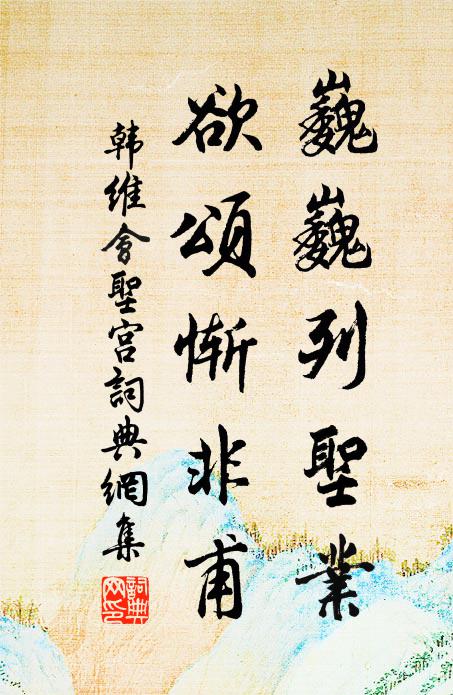 巍巍列聖業
欲頌慚非甫
韩維會聖宫詞典網集
詞典网印